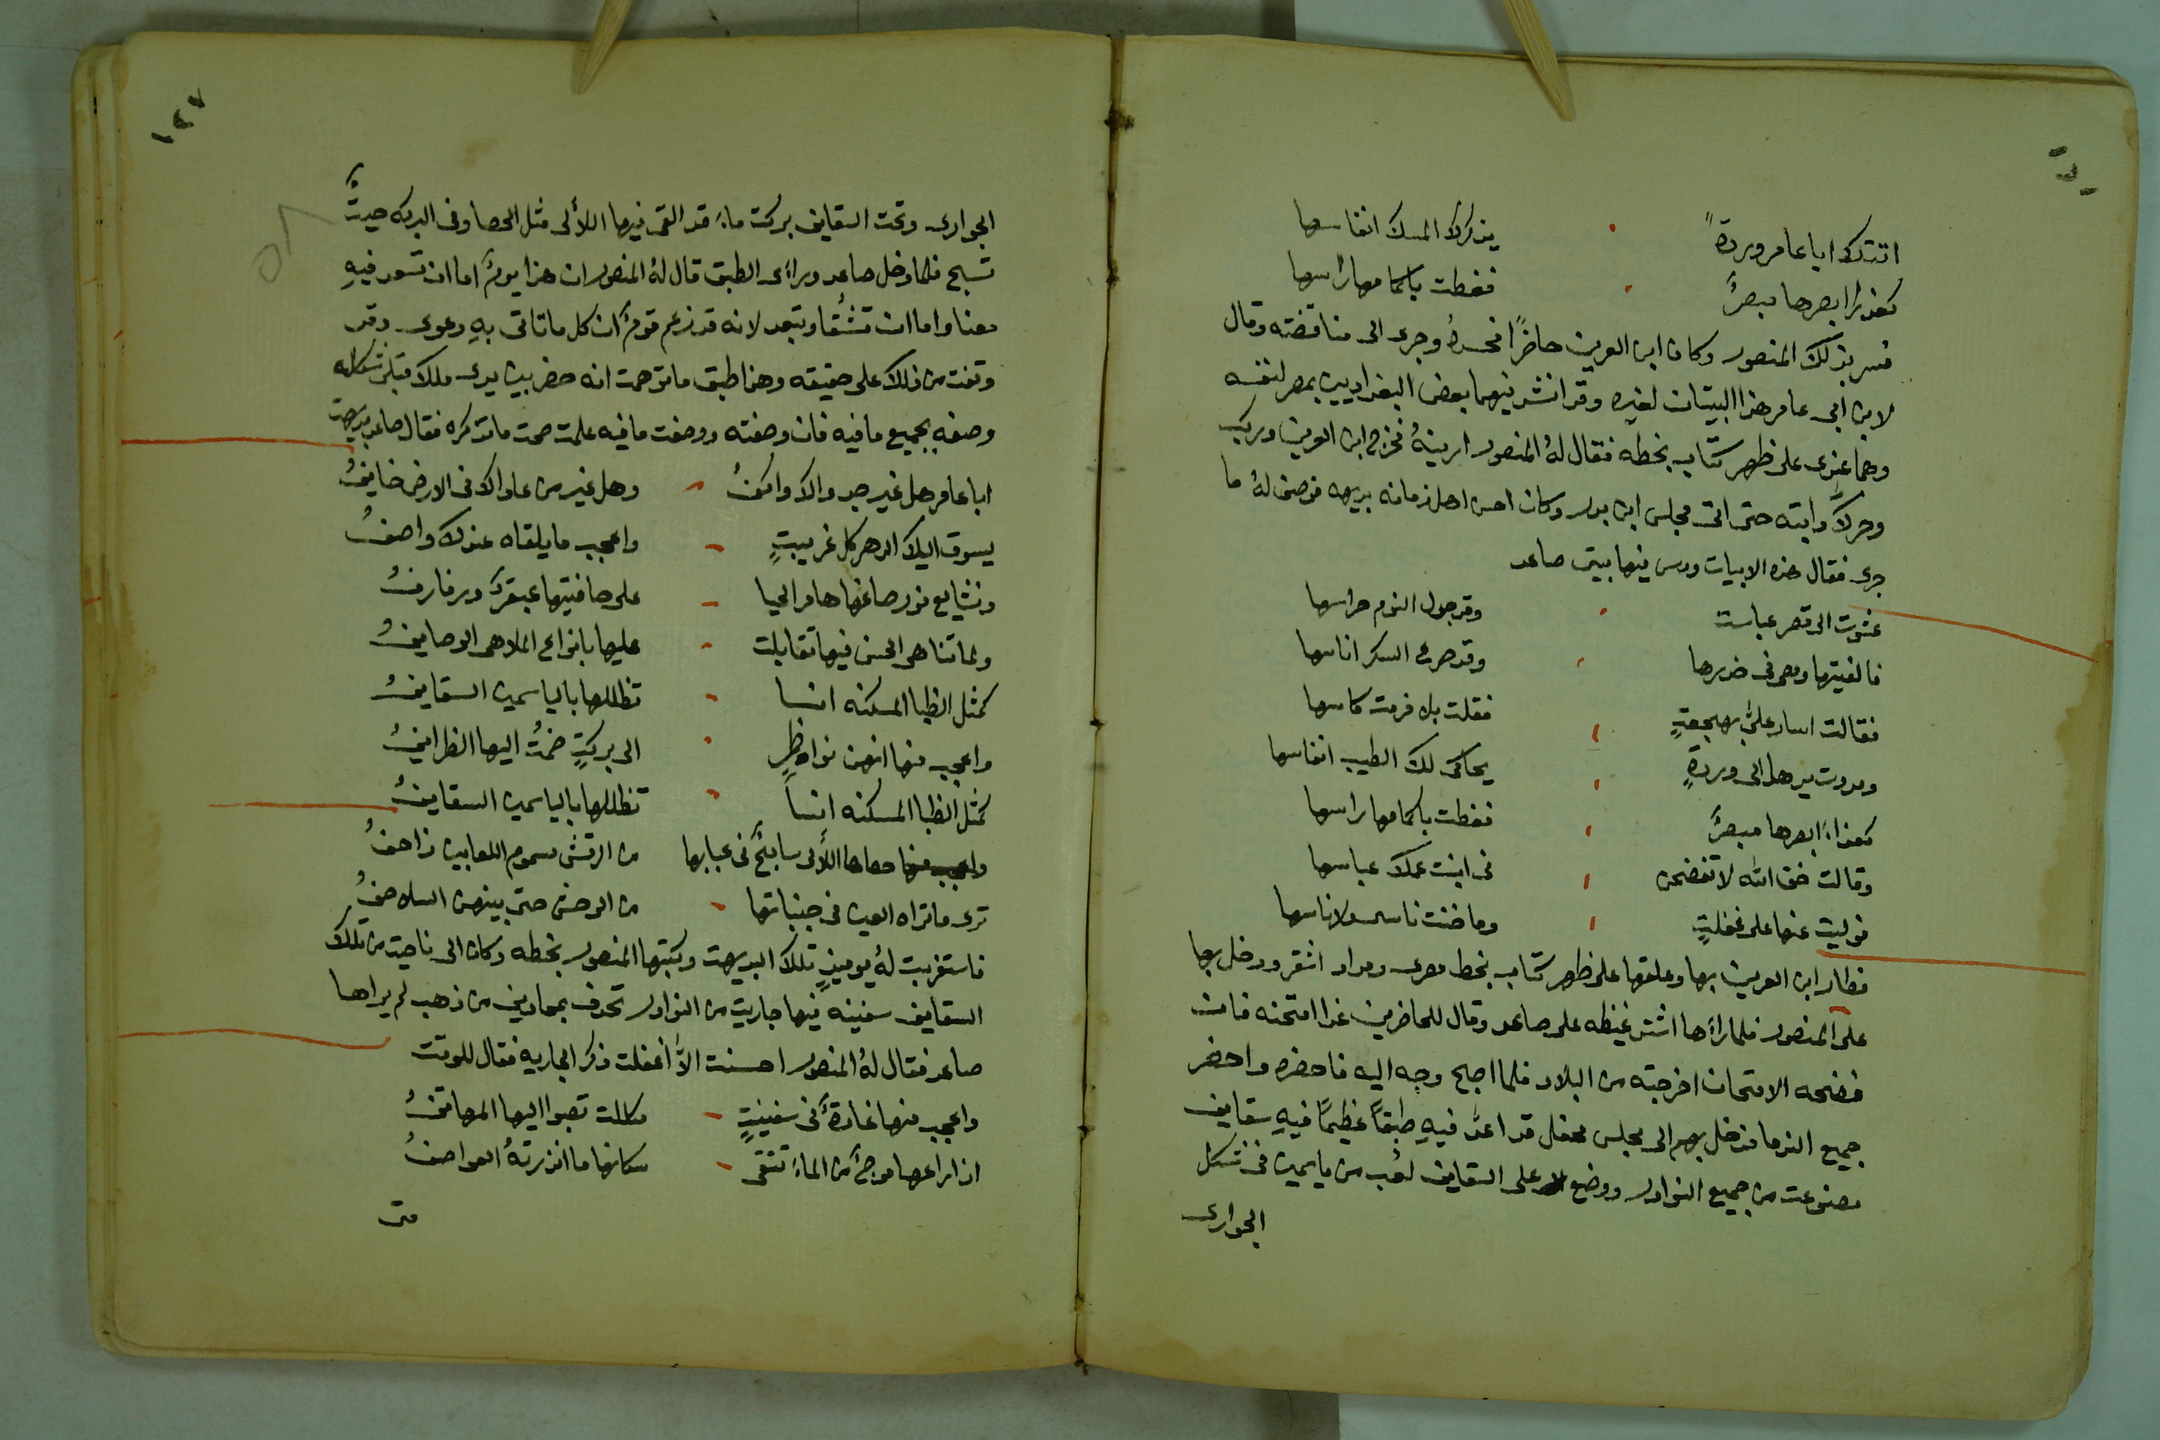 اتتك ابا عامر وردةً يذكرك المسك انفاسها
كعذرا ابصرها مبصرٌ فغطت باكمامها راسها
فسر بذلك المنصور وكان ابن العريف حاضرًا فحسدهُ وجرى الى مناقضته وقال
لابن أبي عامر هذا البيتان لغيره وقد انشد فيهما بعض البغداديين بمصر لنفسه
وهما عندى على ظهر كتاب بخطه فقال لهُ المنصور ارينهُ فخرج ابن العريف وركب
وحرك دابته حتى اتى مجلس ابن بدر وكان احسن اهل زمانه بديهه فوصف لهُ ما
جرى فقال هذه الابيات ودس فيها بيتى صاعد
عشوت الى قصر عباسة وقد جدل النوم حراسها
فالفيتها وهى فى خدرها وقد صرع السكر اناسها
فقالت اسار على هجعةٍ فقلت بلى فرمت كاسها
ومدت يدها الى وردةٍ يحاكى لك الطيب انفاسها
كعذراءَ ابصرها مبصرٌ فغطت باكمامها راسها
وقالت خف الله لا تفضحن فى ابنت عمك عباسها
فوليت عنها على غفلةٍ وما خنت ناسى ولا ناسها
فطار ابن العريف بها وعلقها على ظهر كتاب بخط مصرى ومداد اشقر ودخل بها
على المنصور فلما رأها اشتد غيظه على صاعد وقال للحاضرين غدا امتحنه فان
فضحه الامتحان اخرجته من البلاد فلما اصبح وجه اليه فاحضره واحضر
جميع الندما فدخل بهم الى مجلس محفل قد اعدَّ فيهِ طبقًا عظيمًا فيهِ سقايف
مصنوعت من جميع النوادر ووضع على السقايف لعب من ياسمين فى شكل
الجوارى
١٢٧
٥٨
الجوارى وتحت السقايف بركت ماءَ قد القى فيها اللألى مثل الحصا وفى البركه حيتٌ
تسبح فلما دخل صاعد وراءى الطبق قال لهُ المنصور ان هذا يومٌ اما ان تسعد فيهِ
معنا واما ان تشقا وتبعد لانه قد زعم قومٌ ان كل ما تاتى بهِ دعوى وقد
وقفت من ذلك على حقيقه وهذا طبق ما توهمت انه حضر بين يدى ملك قبلى شكله
وصفه بجميع ما فيه فان وصفته ووصفت ما فيه علمت صحت ما تذكره فقال صاعد بديهت
ابا عامر هل غير جدواك واكفُ وهل غير من عاداك فى الارض خايفُ
يسوق اليك الدهر كل غريبتٍ واعجب ما يلقاه عندك واصفُ
وشايع نور صاغها هامر الحيا على حافتيها عبقرٌ ورفارفُ
ولما تناهى الحسن فيها تقابلت عليها بانواع الملاهى الوصايفُ
كمثل الظبا المسكنه انسا تظللها بالياسمين السقايفُ
واعجب منها انهن نواظرٍ الى بركتٍ ضمتُ اليها الظرايفُ
كمثل الظبا المسكنه انساً تظللها بالياسمين السقايفُ
حصاها اللألى سابحٌ فى عبابها من الرقش مسموم اللعابين زاحفُ
ترى ما تراه العين فى جنباتها من الوحش حتى بينهن السلاحفُ
فاستغربت لهُ يوميذٍ تلك البديهت وكتبها المنصور بخطه وكان الى ناحيت من تلك
السقايف سفينه فيها جاريت من النوادر تجدف بمجاديف من ذهب لم يراها
صاعد فقال لهُ المنصور احسنت الاَّ اغفلت ذكر الجاريه فقال للوقت
واعجب منها غادةٌ فى سفينتٍ مكللت تصبوا اليها المهاتفُ
اذا راعها موجٌ من الماءَ تتقى سكانها ما انذرتهُ العواصفُ
متى